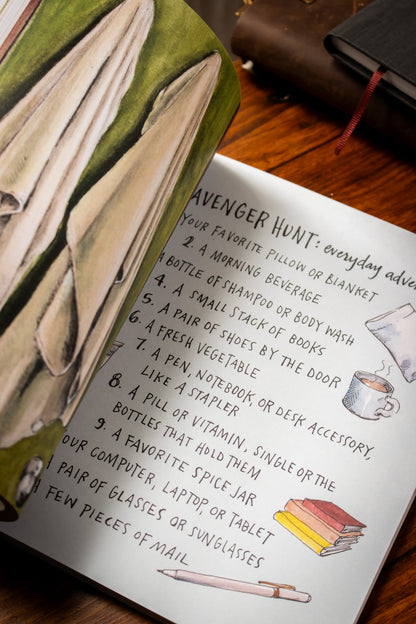 AVENGER HUNT: everyday adve
YOUR FAVORITE PILLOW OR BLANKET
2. A MORNING BEVERAGE
A BOTTLE OF SHAMPOO OR BODY WASH
4. A SMALL STACK OF BOOKS
5. A PAIR OF SHOES BY THE DOOR
6. A FRESH VEGETABLE
7. A PEN, NOTEBOOK, OR DESK ACCESSORY,
LIKE A STAPLER
8. A PILL OR VITAMIN, SINGLE OR THE
BOTTLES THAT HOLD THEM
9. A FAVORITE SPICE JAR
OUR COMPUTER, LAPTOP, OR TABLET
A PAIR OF GLASSES OR SUNGLASSES
A FEW PIECES OF MAIL